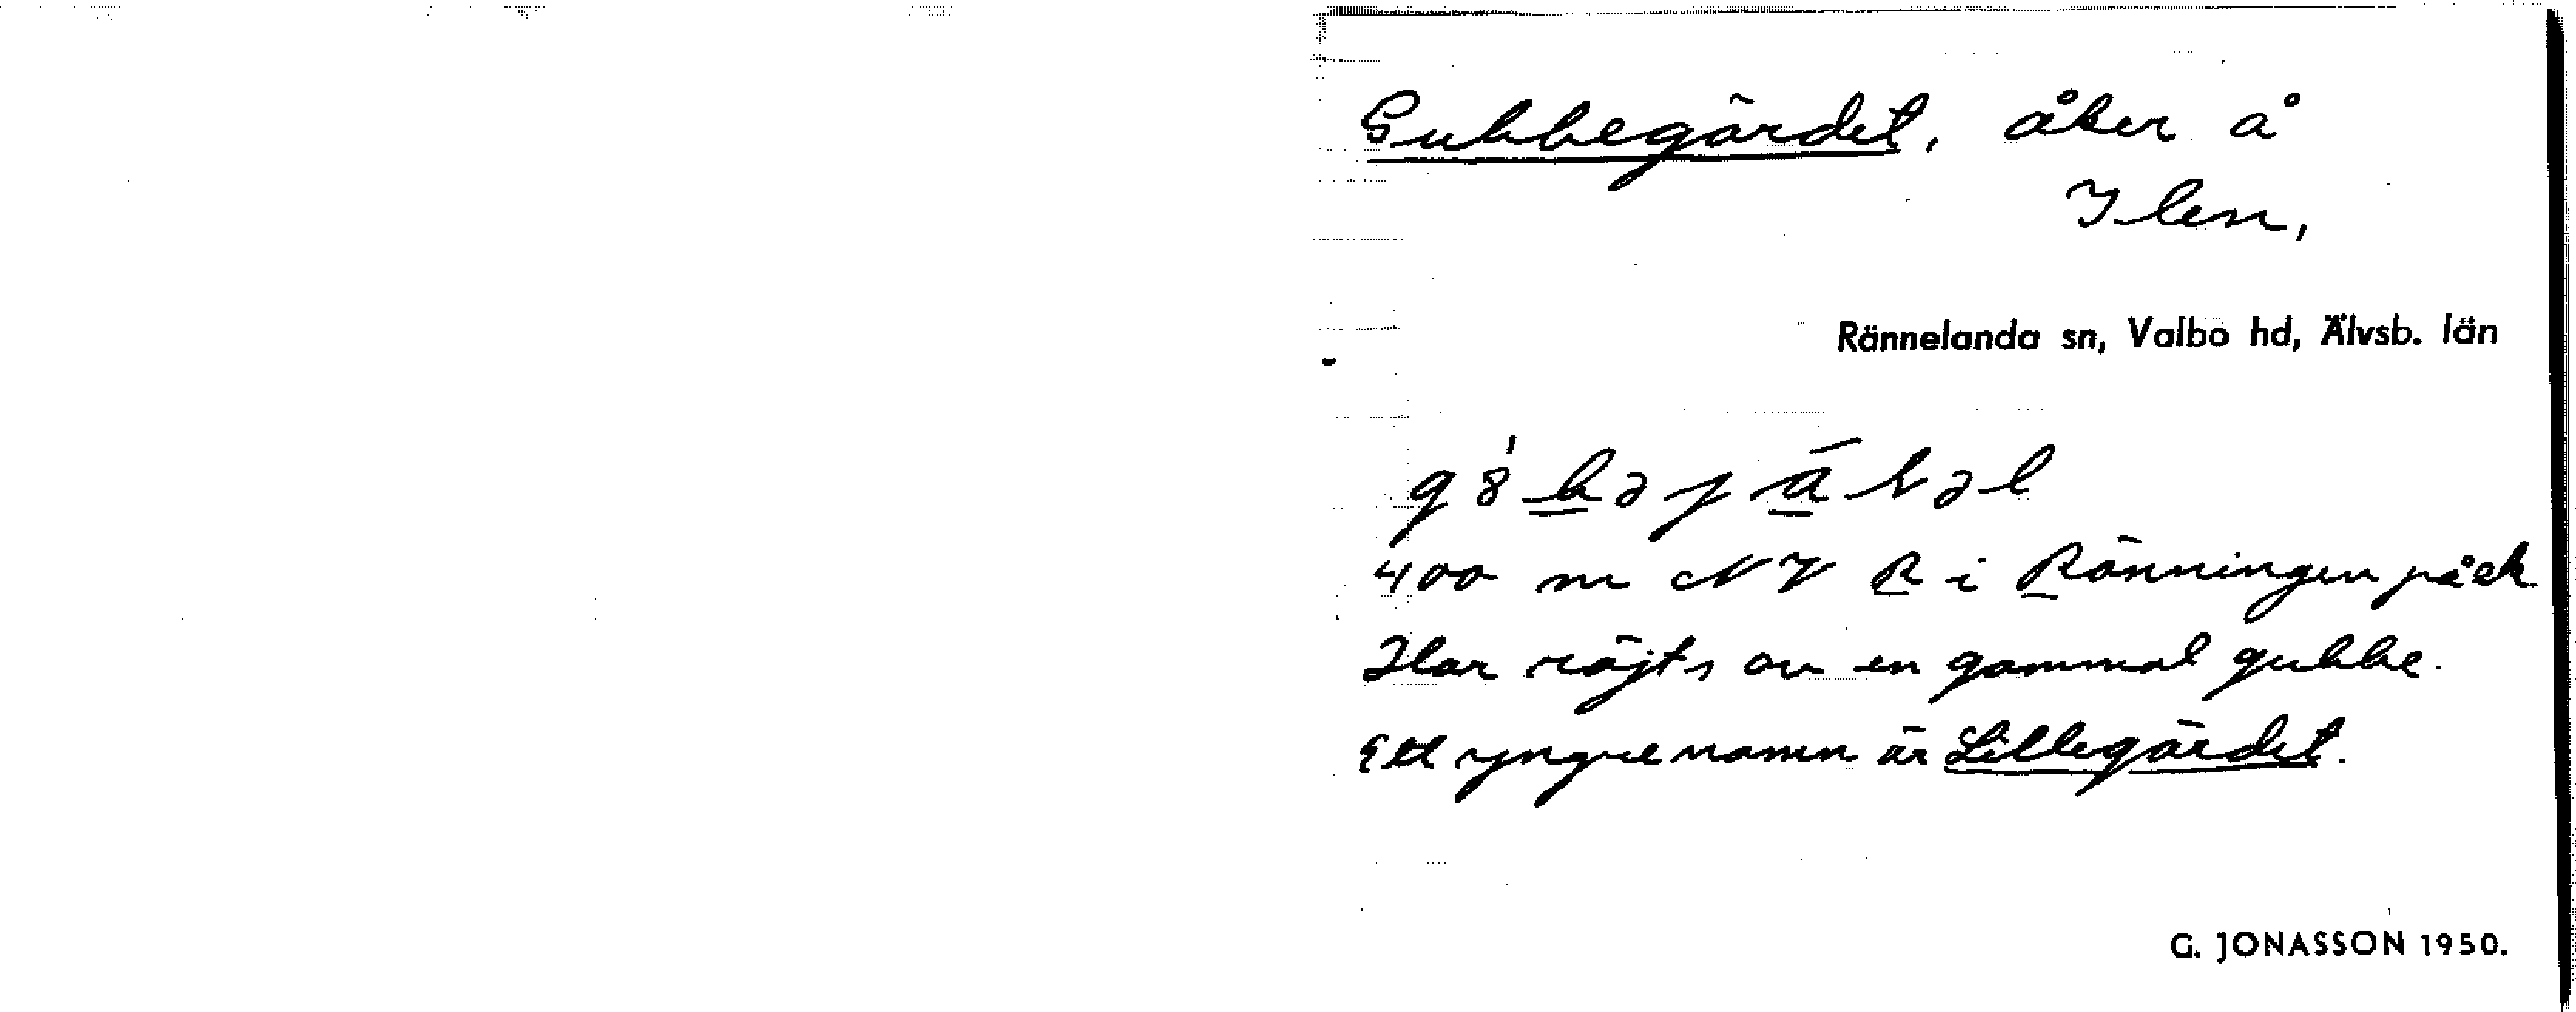 Gubbegärdet, åker å
Ilen,
Rännelanda sn, Valbo hd, Älvsb. län
400 m NV R i Rönningen på ek
Har röjts av en gammal gubbe.
Ett yngre namn är Lillegärdet.
G. JONASSON 1950.